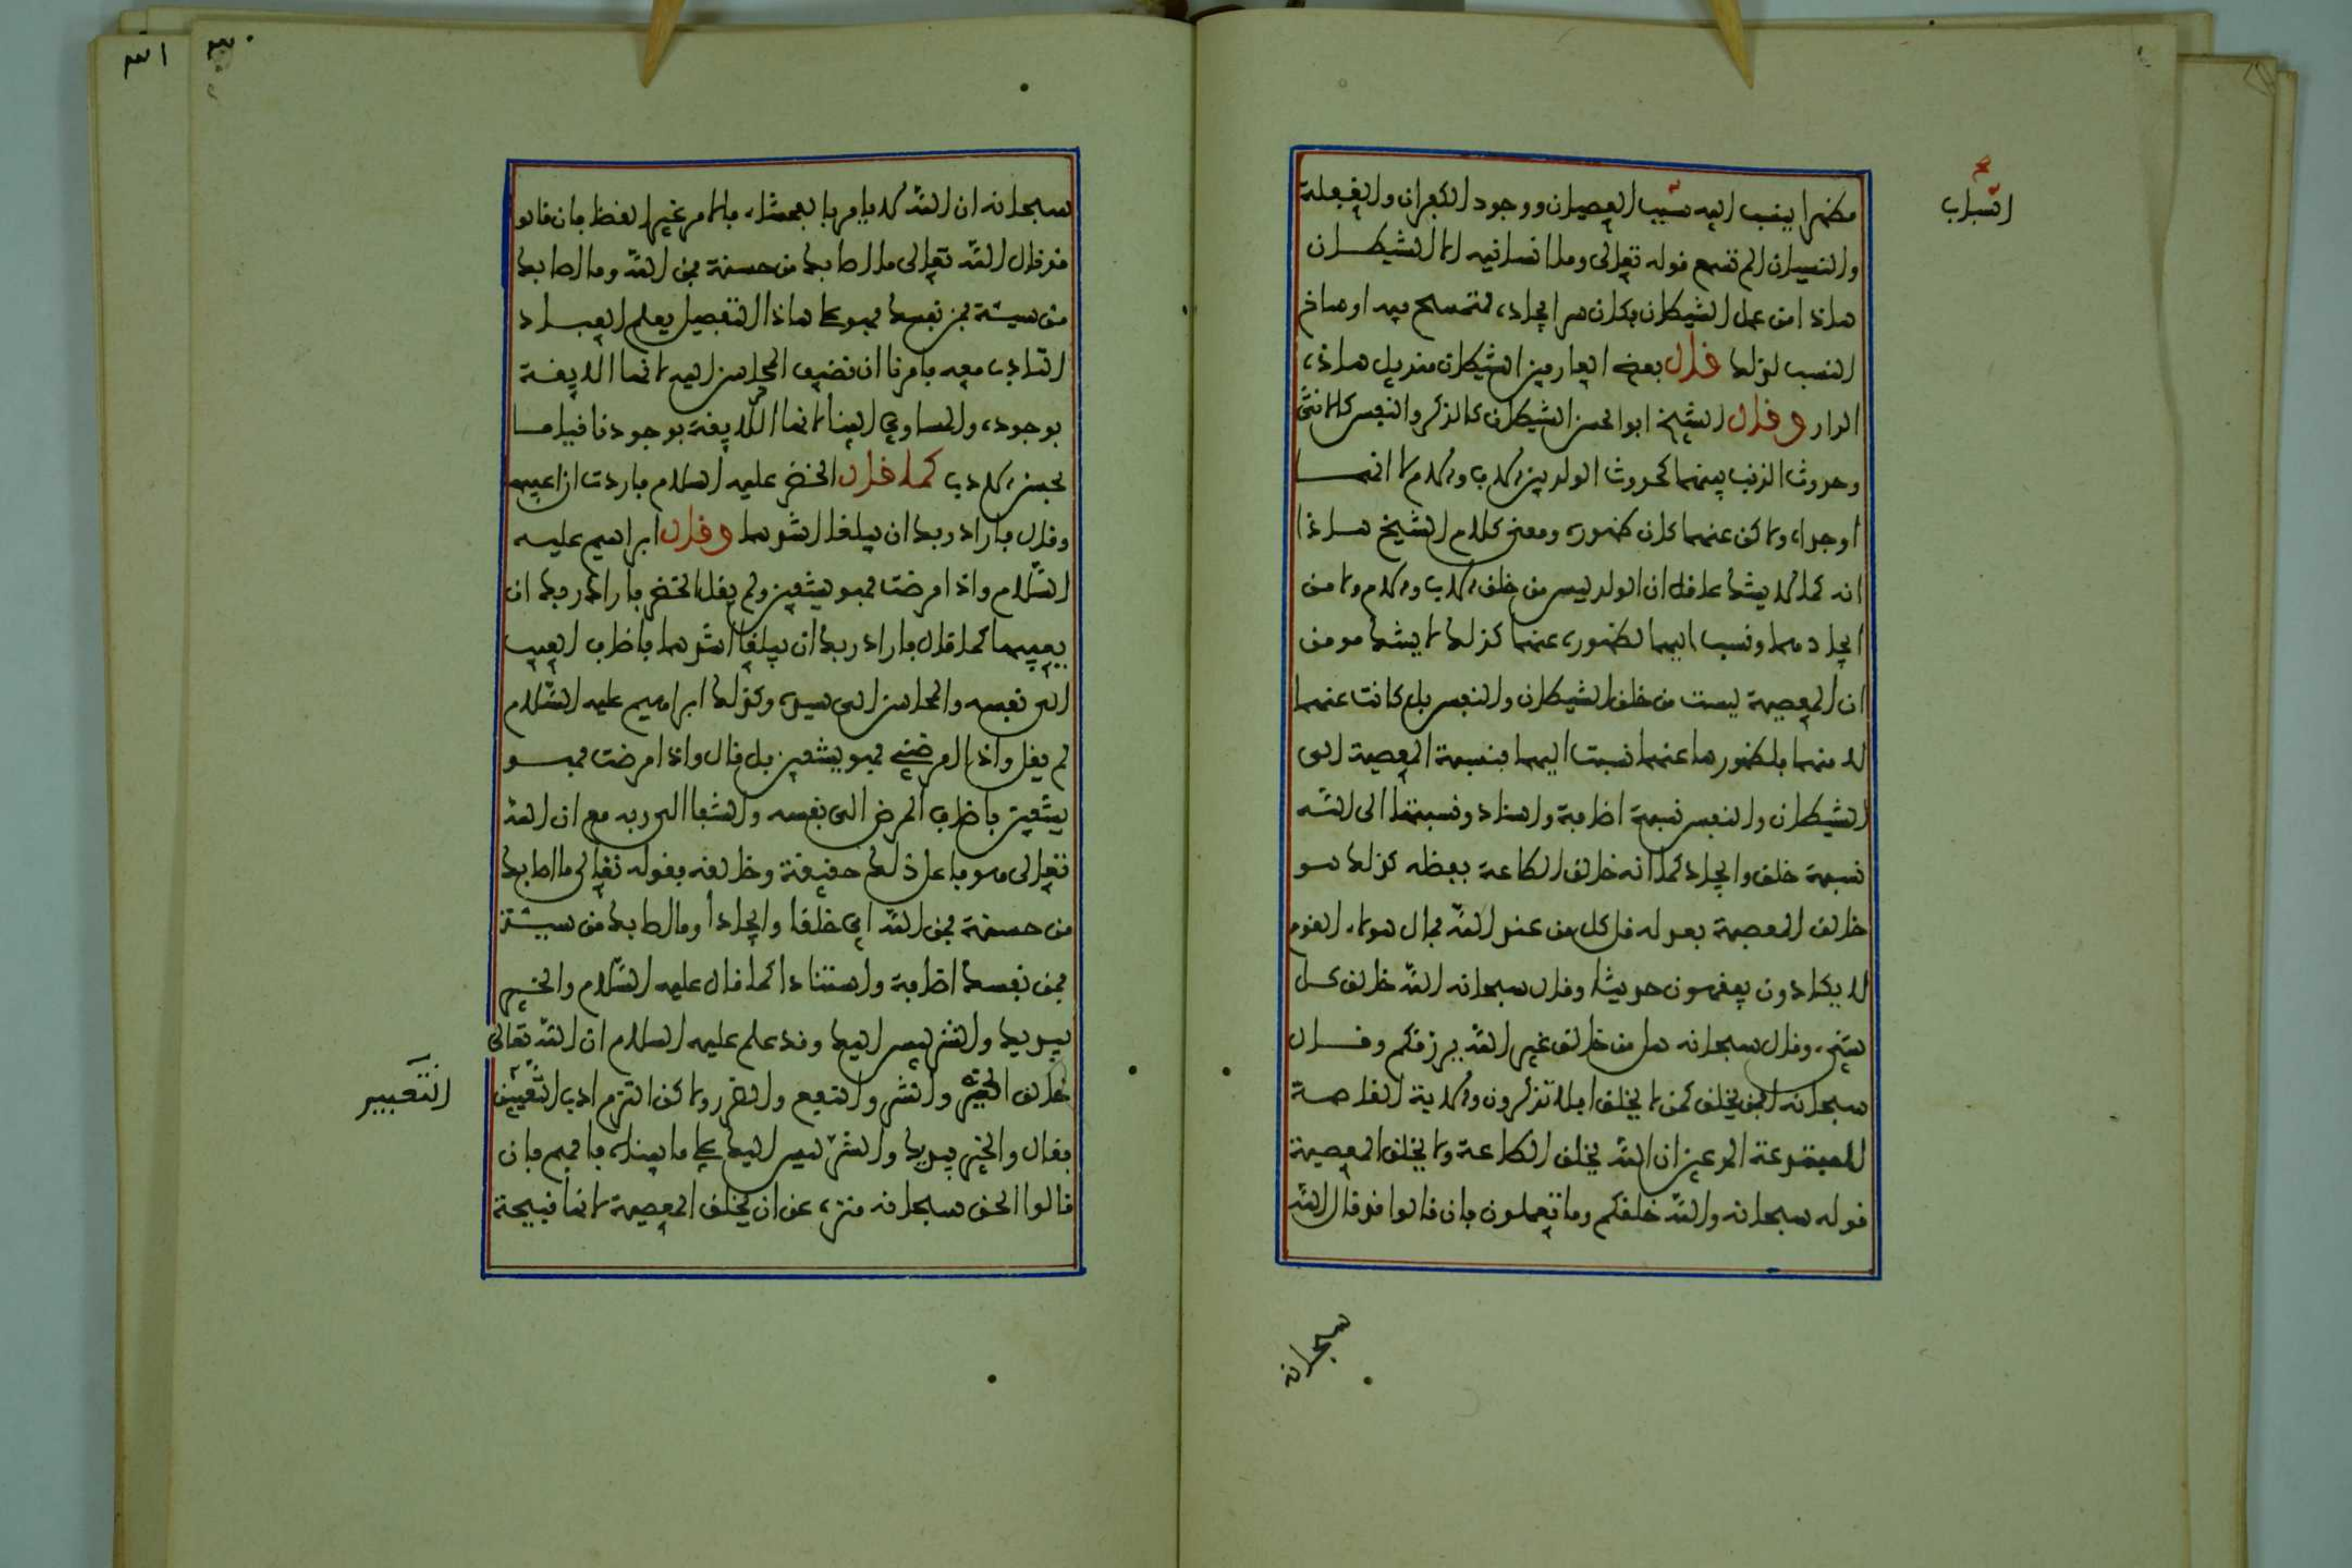 اسباب
مظهرا ينسب اليه سبب العصيان ووجود الكفران والغفلة
والنسيان الم تسمع قوله تعالى وما انسانيه الا الشيطان
هاذا من عمل الشيطان فكان سر ايجاده لتمسح فيه اوساخ
النسب لذلك قال بعض العارفين الشيطان منديل هاذه
الدار وقال الشيخ ابو الحسن الشيطان كالذكر والنفس كالانثى
وحدوث الذنب بينهما كحدوث الولد بين الاب والام لا انهما
اوجداه ولاكن عنهما كان ظهوره ومعنى كلام الشيخ هاذا
انه كما لا يشك عاقل ان الولد ليس من خلق الاب والام ولا من
ايجادهما ونسب اليهما لظهوره عنهما كذلك لا يشك مومن
ان المعصية ليست من خلق الشيطان والنفس بل كانت عنهما
لا منهما فلظهورها عنهما نسبت اليهما فنسبة المعصية الى
الشيطان والنفس نسبة اضافة واسناد ونسبتها الى الله
نسبة خلق وايجاد كما انه خالق الطاعة بفضله كذلك هو
خالق المعصية بعدله قل كل من عند الله فمال هولاء القوم
لا يكادون يفقهون حديثا وقال سبحانه الله خالق كل
شيء وقال سبحانه هل من خالق غير الله يرزقكم وقال
سبحانه افمن يخلق كمن لا يخلق افلا تذكرون والاية القاصمة
للمبتدعة المدعين ان الله يخلق الطاعة ولا يخلق المعصية
قوله سبحانه والله خلقكم وما تعملون فان قالوا قد قال الله
سبحانه
سبحانه ان الله لا يامر بالفحشاء فالامر غير القضا فان قالوا
قد قال الله تعالى ما اصابك من حسنة فمن الله وما اصابك
من سيئة فمن نفسك فهو على هاذا التفصيل يعلم العباد
التادب معه فامرنا ان نضيف المحاسن اليه لانها اللايقة
بوجوده والمساوي الينا لانها اللايقة بوجودنا قياما
بحسن الادب كما قال الخضر عليه السلام فاردت ان اعيبها
وقال فاراد ربك ان يبلغا اشدهما وقال ابراهيم عليه
السلام واذا مرضت فهو يشفين ولم يقل الخضر فاراد ربك ان
يعيبها كما قال فاراد ربك ان يبلغا اشدهما فاضاف العيب
الى نفسه والمحاسن الى سيده وكذلك ابراهيم عليه السلام
لم يقل واذا امرضني فهو يشفين بل قال واذا مرضت فهو
يشفين فاضاف المرض الى نفسه والشفا الى ربه مع ان الله
تعالى هو فاعل ذلك حقيقة وخالقه فقوله تعالى ما اصابك
من حسنة فمن الله اي خلقا وايجادا وما اصابك من سيئة
فمن نفسك اضافة واستنادا كما قال عليه السلام والخير
بيديك والشر ليس اليك وقد علم عليه السلام ان الله تعالى
خالق الخير والشر والنفع والضر ولاكن التزم ادب التعبير
التعبير
فقال والخير بيديك والشر ليس اليك على ما بيناه فافهم فان
قالوا الحق سبحانه منزه عن ان يخلق المعصية لانها قبيحة